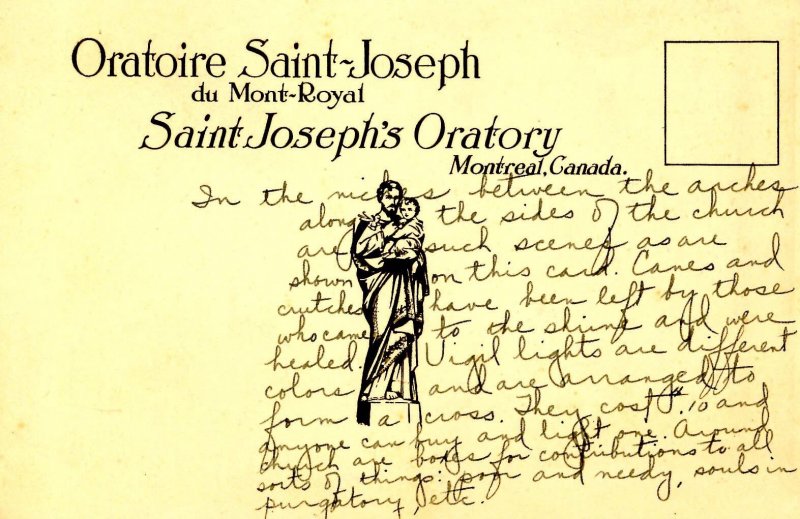 Oratoire Saint-Joseph
du Mont-Royal
Saint Joseph's Oratory
Montreal, Canada.
In the niches between the arches
along the sides of the church
are such scenes as are
shown on this card. Canes and
crutches have been left by those
who came to the shrine and were
healed. Vigil lights are different
colors and are arranged to
form a cross. They cost .10 and
anyone can buy and light one. Around
church are boxes for contributions to all
sorts of things: poor and needy, souls in
purgatory, etc.